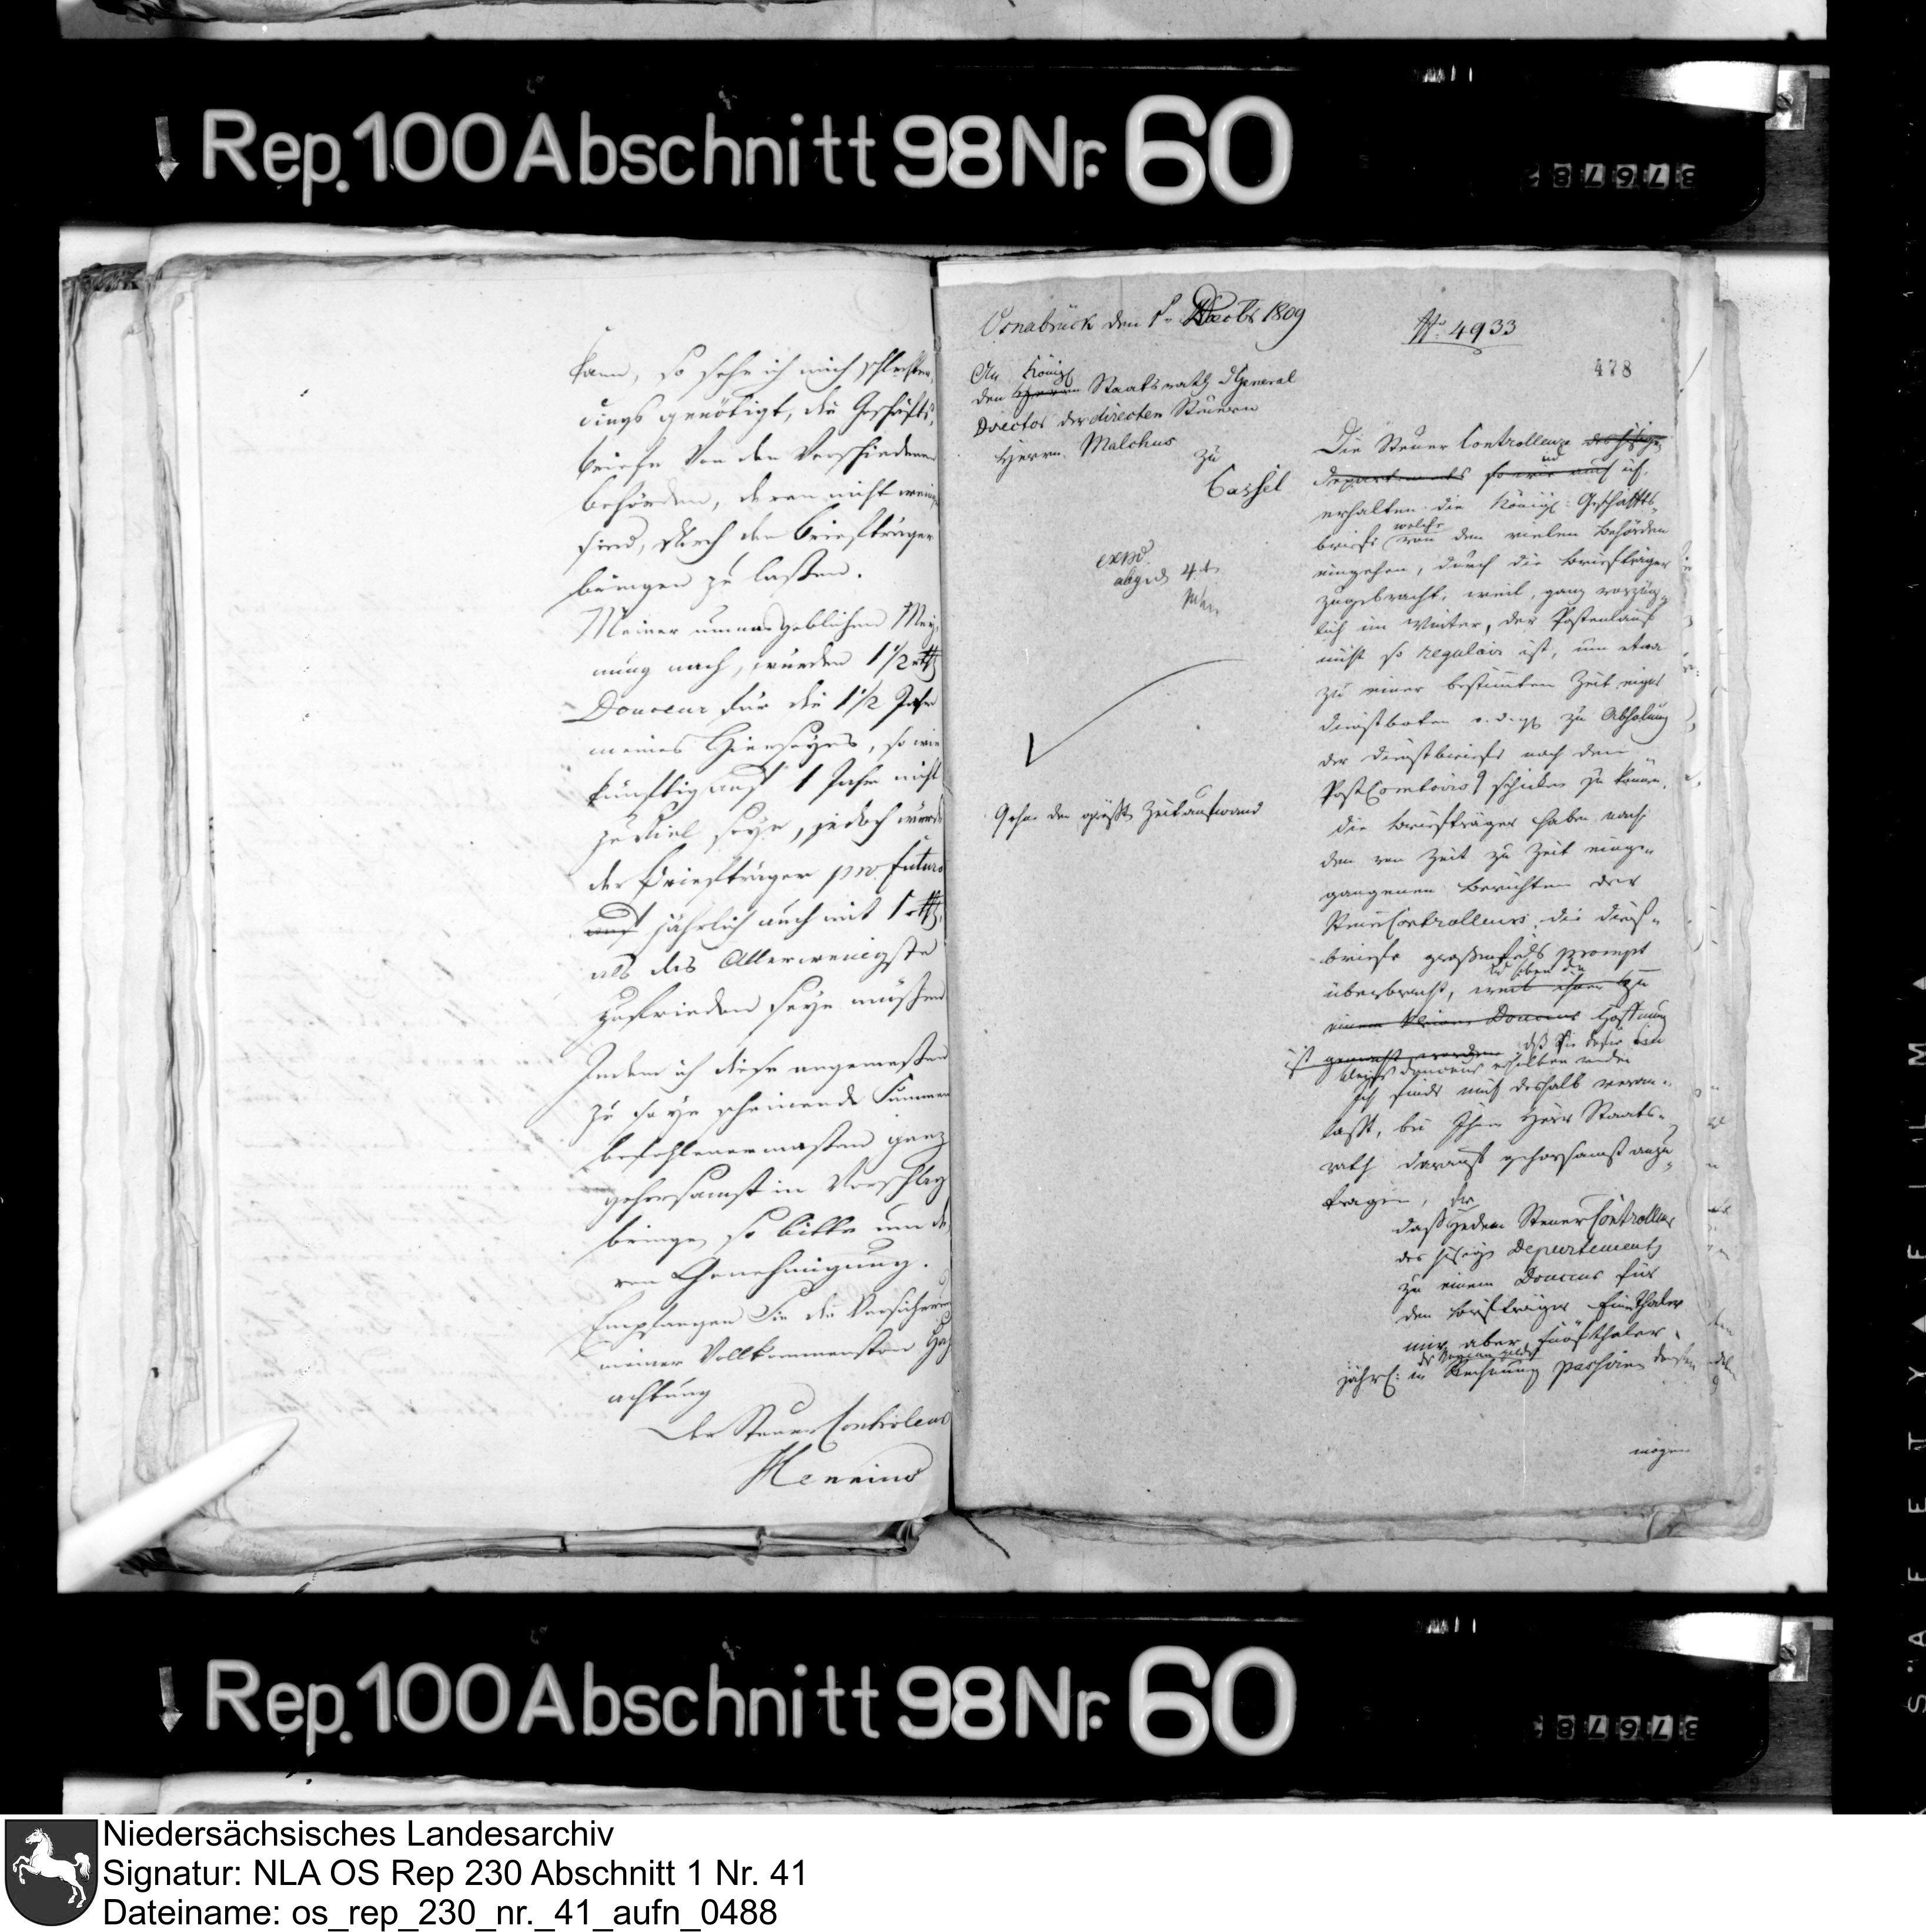 Rep. 100 Abschnitt 98 Nr. 60
37678
kann, so sehe ich mich schlechter
dings genötigt, die Geschäfts
briefe von den verschiedenen
behörden, deren nicht wenig
sind, durch den briefträger
bringen zu laßen.
Meiner unmasgeblichen Mey
nung nach, würden 1 1/2 rth
Douceur für die 1 1/2 Jahr
meines Hierseyns, so wie
künftig auf 1 Jahr nicht
zu viel seyn, jedoch würde
der Briefträger pro futuro
jährlich auch mit 1 rth
als das Allerwenigste
zufrieden seyn müßen
Indem ich diese angemeßen
zu seyn scheinende Summen
befohlenermaßen ganz
gehorsamst in Vorschlag
bringe, so bitte um de
ren Genehmigung.
Empfangen Sie die Versicherung
meiner Vollkommensten Hoch
achtung
Der Steuer Controleur
Osnabrück den 1n Decbr 1809
No 4933
478
An
den Herrn Königl Staatsrath General
Director der directen Steuern
Herrn Malchus
zu
Cassel
exp.
abgeg. 4t
Die Steuer Controlleure des hiesigen
Departements so wie auch ich,
erhalten die Königl: Geschäffts
briefe welche von den vielen Behörden
eingehen, durch die Briefträger
zugebracht, weil, ganz vorzüg
lich im Winter, der Postenlauf
nicht so regulair ist, um etwa
zu einer bestimten Zeit eigne
dienstboten zu Abholung
der dienstbriefe nach dem
Post Comtoir schicken zu können.
Gehe den größt Zeitaufwand
die Briefträger haben nach
den von Zeit zu Zeit einge
gangenen Berichten der
Steuer Controlleurs die dienst
briefe großentheils prompt
überbracht, weil ihnen zu
einem kleinen Douceur Hoffnung
ist gemacht worden daß Sie dafür ein
kleines douceur erhalten würden
Ich finde mich deshalb veran
laßt, bei Ihnen Herr Staats
rath darauf gehorsamst anzu
tragen,
daß jedem Steuer Controlleur
des hiesigen Departements
zu einem Douceur für
den briefträger Ein Thaler
mir aber fünf thaler
jährl: in Rechnung passiren
mögen
Rep. 100 Abschnitt 98 Nr. 60
37678
SAFETY FILM
Niedersächsisches Landesarchiv
Signatur: NLA OS Rep 230 Abschnitt 1 Nr. 41
Dateiname: os_rep_230_nr._41_aufn_0488